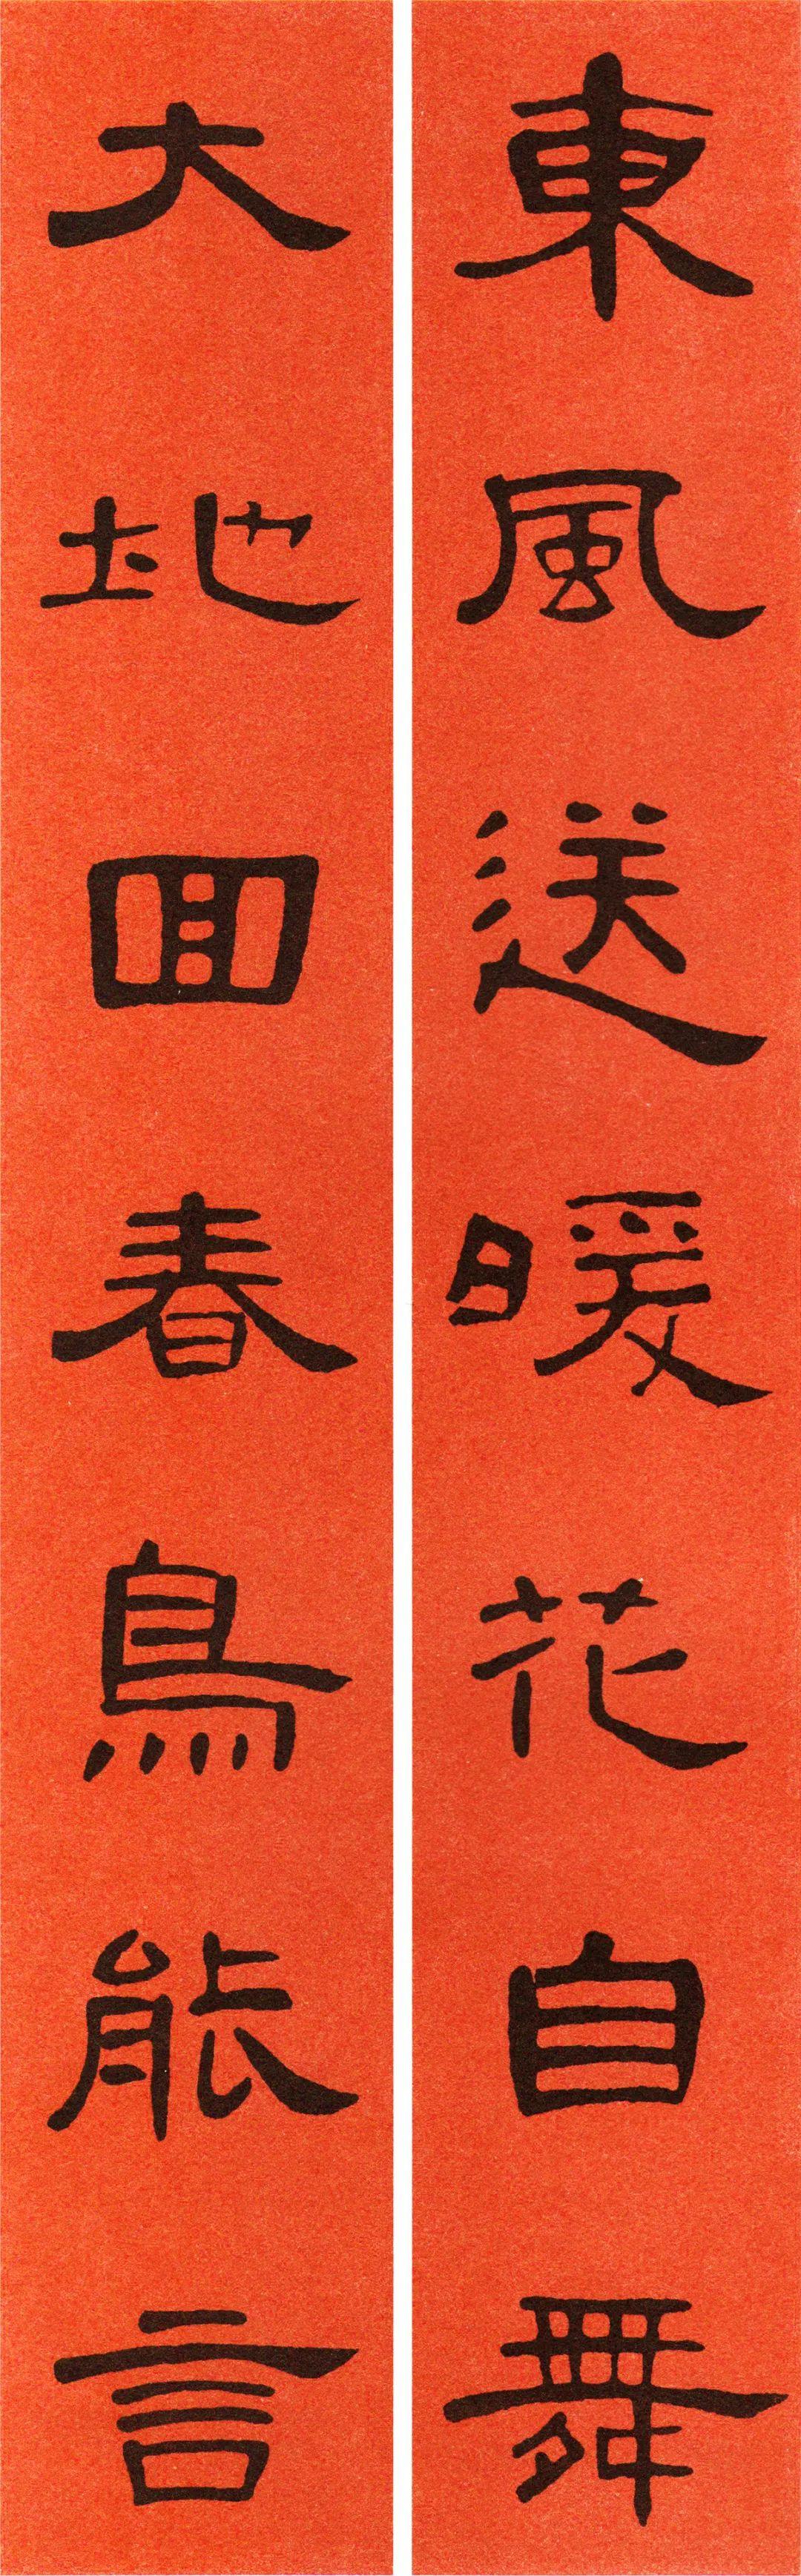 東風送暖花自舞
大地回春鳥能言